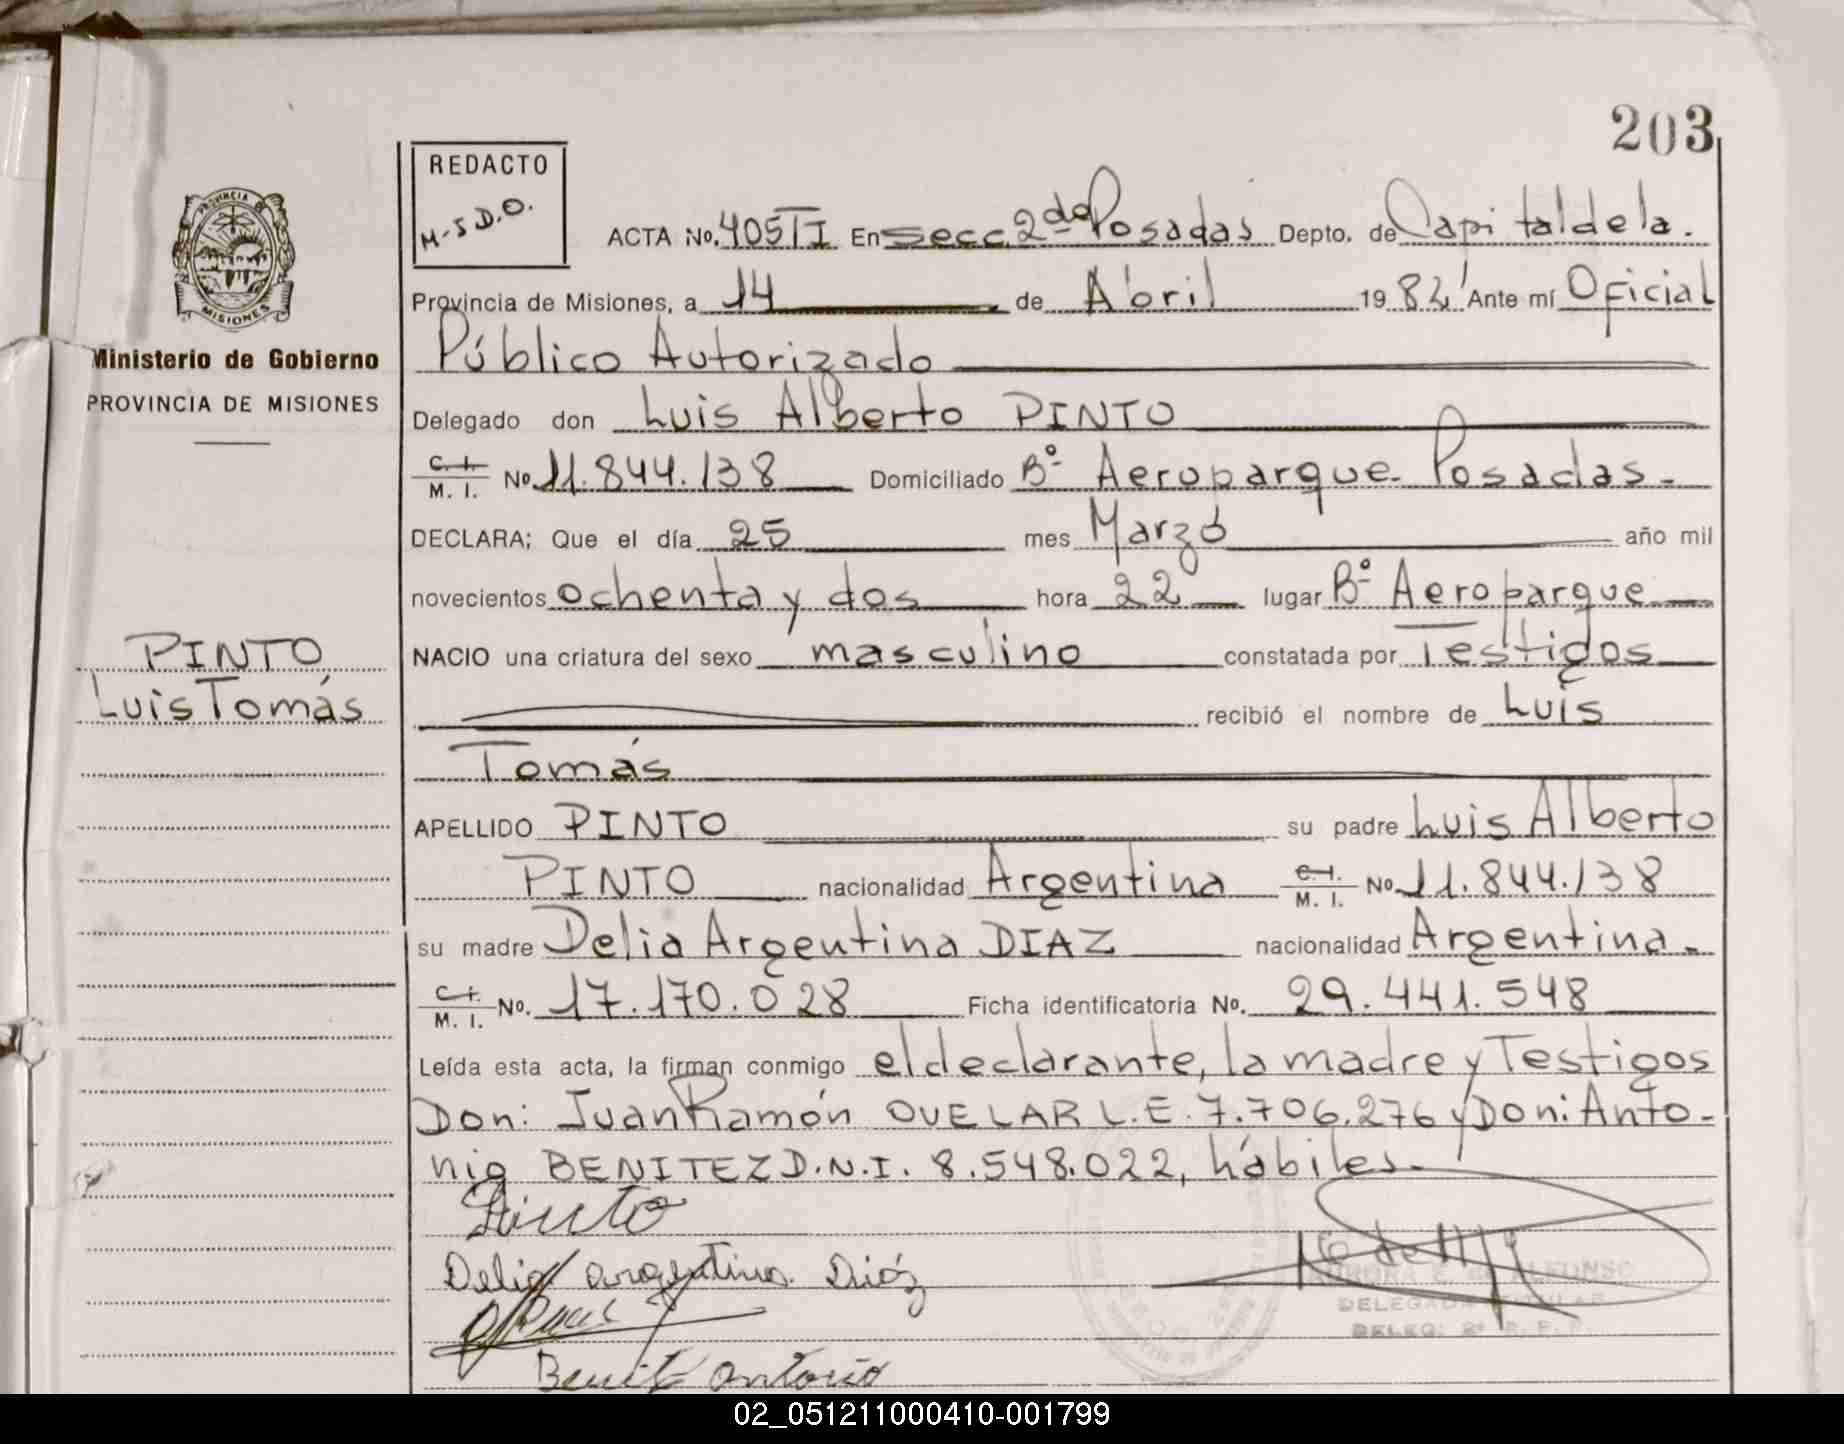 203
REDACTO
M-S D.O.
PROVINCIA DE
MISIONES
ACTA No. 405 TI En Secc 2da Posadas Depto. de Capital de la.
Provincia de Misiones, a 14 de Abril 1982 Ante mí Oficial
Público Autorizado
Ministerio de Gobierno
PROVINCIA DE MISIONES
Delegado don Luis Alberto PINTO
C. I. M. I. No 11.844.138 Domiciliado Bº Aeroparque - Posadas.-
DECLARA; Que el día 25 mes Marzo año mil
novecientos ochenta y dos hora 22 lugar Bº Aeroparque
PINTO
Luis Tomás
NACIO una criatura del sexo masculino constatada por Testigos
recibió el nombre de Luis
Tomás
APELLIDO PINTO su padre Luis Alberto
PINTO nacionalidad Argentina C.I. M. I. No 11.844.138
su madre Delia Argentina DIAZ nacionalidad Argentina.-
C.I. M. I. No. 17.170.028 Ficha identificatoria No. 29.441.548
Leída esta acta, la firman conmigo el declarante, la madre y Testigos
Don: Juan Ramón OVELAR L.E. 7.706.276 y Don: Anto-
nio BENITEZ D.N.I. 8.548.022, hábiles.-
Pinto
Delia Argentina Diáz
AURORA E. de ALFONSO
DELEGADA TITULAR
DELEG: 2ª
Benitz Antonio
02_051211000410-001799